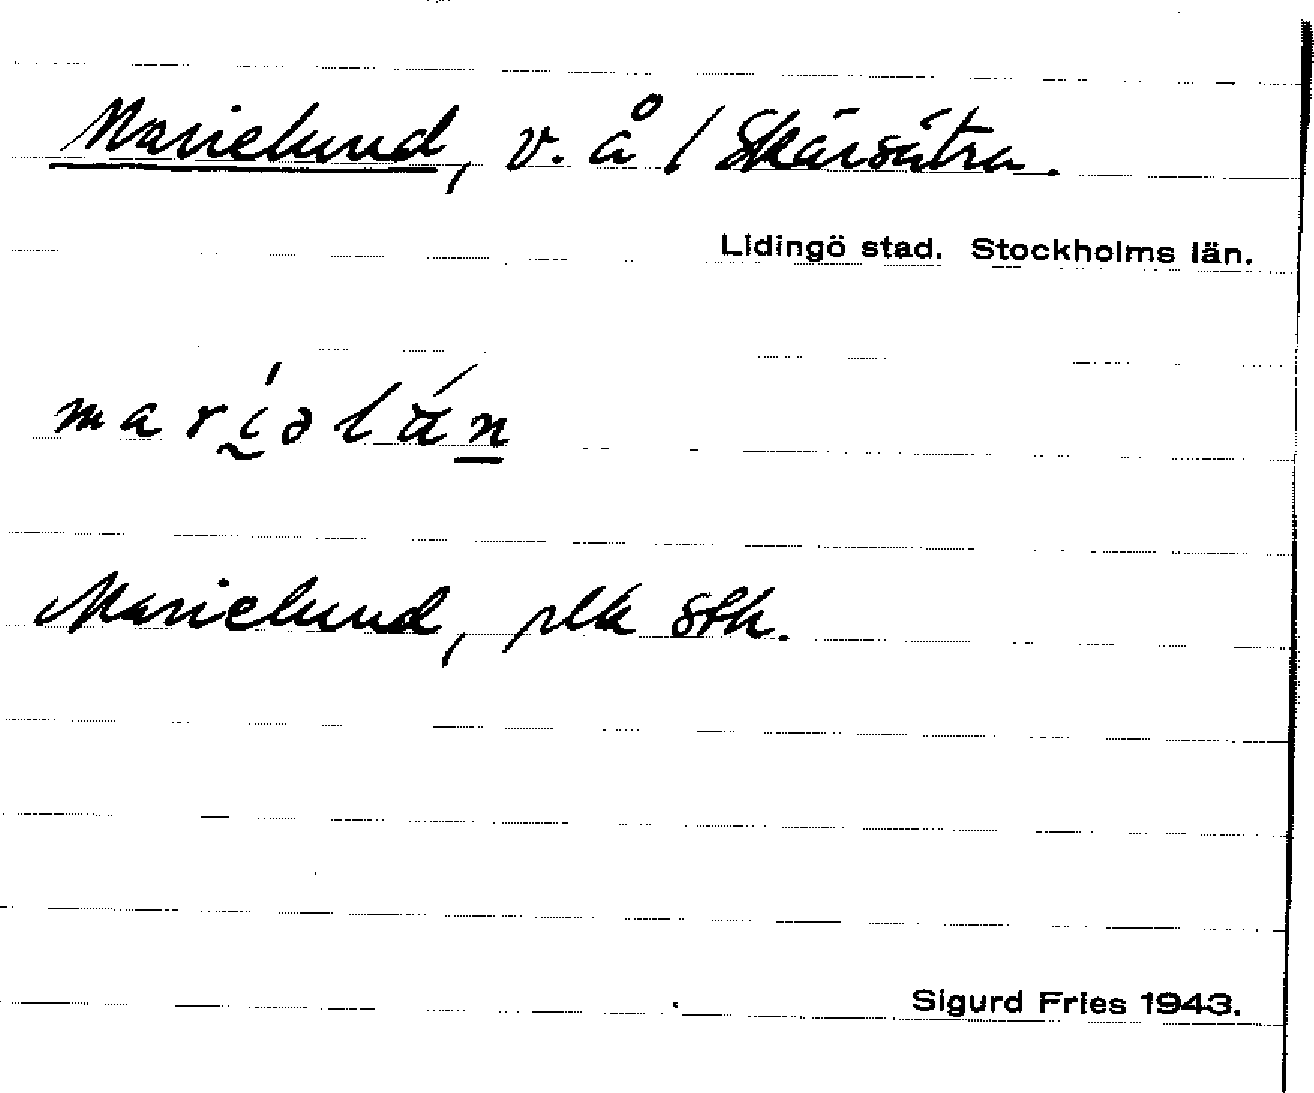 Marielund, v. å / Skärsätra.
Lidingö stad. Stockholms län.
Marielund, plk Sth.
Sigurd Fries 1943.